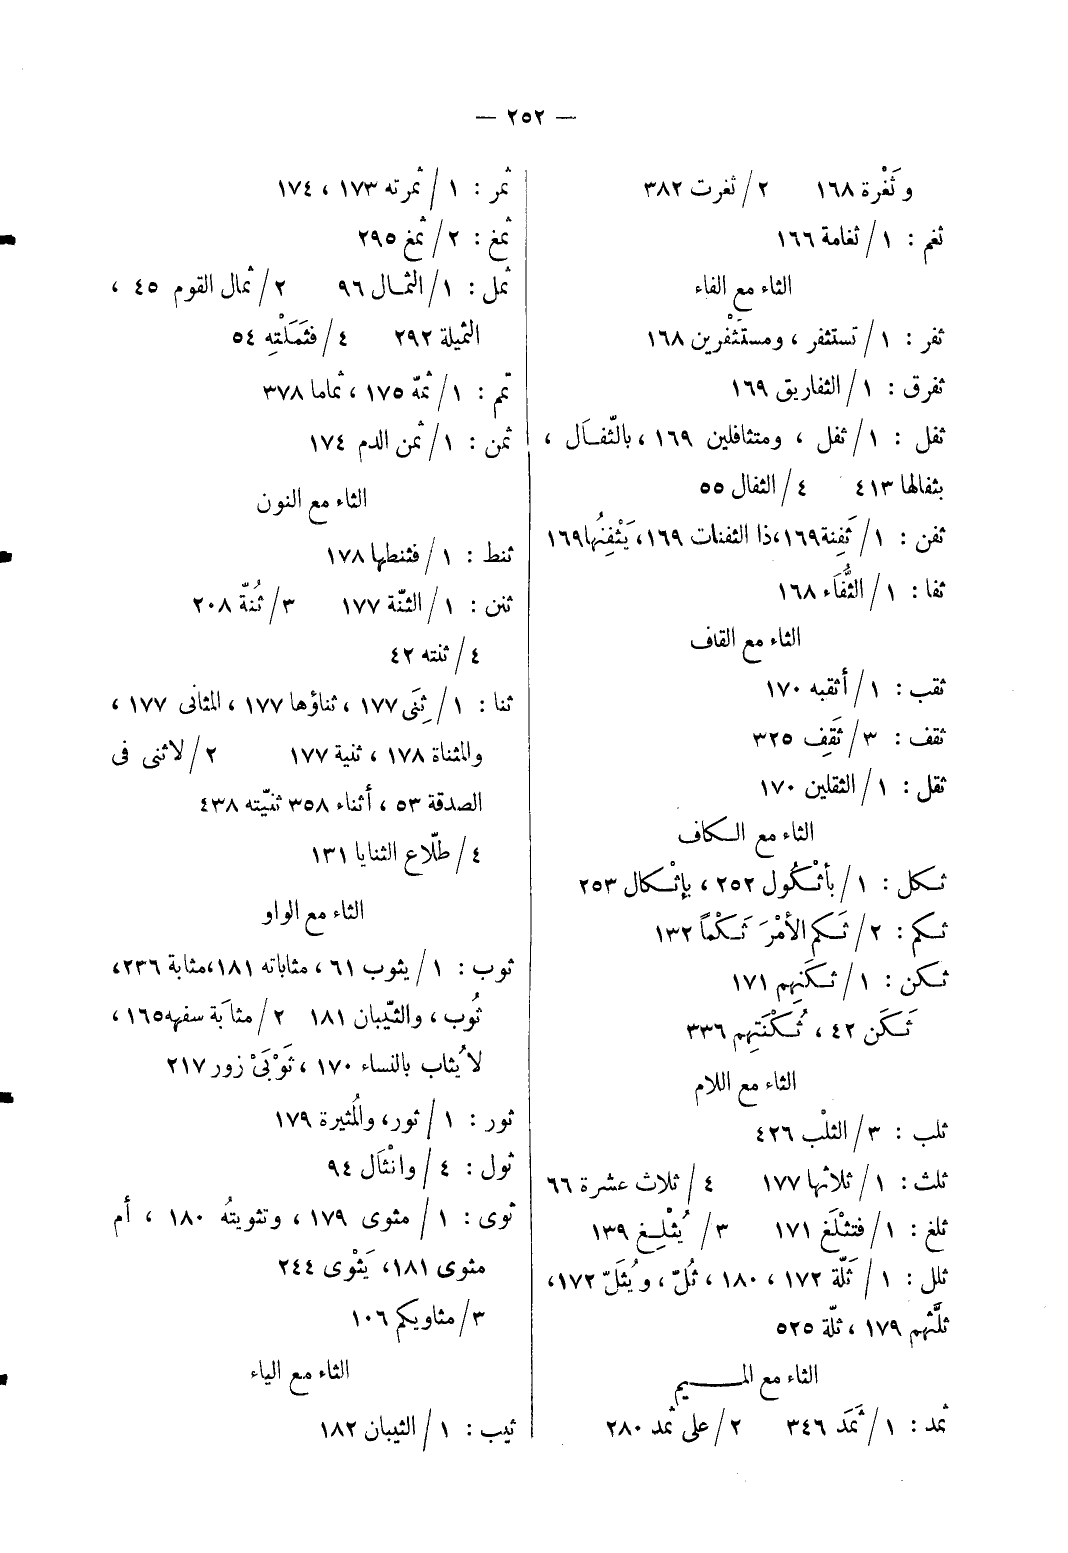 — ٢٥٢ —
وثَغْرة ١٦٨ ٢/ ثغرت ٣٨٢
ثغم : ١/ ثغامة ١٦٦
الثاء مع الفاء
ثفر : ١/ تستثفر ، ومستَثْفرين ١٦٨
ثفرق : ١/ الثفاريق ١٦٩
ثفل : ١/ ثفل ، ومتثافلين ١٦٩ ، بالثّفـال ،
بثفالها ٤١٣ ٤/ الثفال ٥٥
ثفن : ١/ ثَفِنة ١٦٩، ذا الثفنات ١٦٩، يَثْفِنُها ١٦٩
ثفا : ١/ الثُّفَاء ١٦٨
الثاء مع القاف
ثقب : ١/ أثقبه ١٧٠
ثقف : ٣/ ثَقِف ٣٢٥
ثقل : ١/ الثقلين ١٧٠
الثاء مع الكاف
ثكل : ١/ بأثْكُول ٢٥٢ ، بإثْكال ٢٥٣
ثكم : ٢/ ثَكم الأمْرَ ثَكْماً ١٣٢
ثكن : ١/ ثكَنِهم ١٧١
ثَكَن ٤٢ ، ثُكْنَتِهم ٣٣٦
الثاء مع اللام
ثلب : ٣/ الثلْب ٤٢٦
ثلث : ١/ ثلاثها ١٧٧ ٤/ ثلاث عشرة ٦٦
ثلغ : ١/ فتثْلَغ ١٧١ ٣/ يُثْلِغ ١٣٩
ثلل : ١/ ثَلّة ١٧٢ ، ١٨٠ ، ثُلّ ، ويُثَلّ ١٧٢،
ثلَّتهم ١٧٩ ، ثلّة ٥٢٥
الثاء مع المـــيم
ثمد : ١/ ثَمَد ٣٤٦ ٢/ على ثمد ٢٨٠
ثمر : ١/ ثمرته ١٧٣ ، ١٧٤
ثمغ : ٢/ ثمغ ٢٩٥
ثمل : ١/ الثمـال ٩٦ ٢/ ثمال القوم ٤٥ ،
الثميلة ٢٩٢ ٤/ فثَمَلَتْهِ ٥٤
ثم : ١/ ثمّة ١٧٥ ، ثماما ٣٧٨
ثمن : ١/ ثمن الدم ١٧٤
الثاء مع النون
ثنط : ١/ فثنطها ١٧٨
ثنن : ١/ الثنّة ١٧٧ ٣/ ثُنّة ٢٠٨
٤/ ثنته ٤٢
ثنا : ١/ ثِنَى ١٧٧ ، ثناؤها ١٧٧ ، المثانى ١٧٧ ،
والمثناة ١٧٨ ، ثنية ١٧٧ ٢/ لاثنى فى
الصدقة ٥٣ ، أثناء ٣٥٨ ثنيّته ٤٣٨
٤/ طلّاع الثنايا ١٣١
الثاء مع الواو
ثوب : ١/ يثوب ٦١ ، مثاباته ١٨١، مثابة ٢٣٦،
ثُوب ، والثيّبان ١٨١ ٢/ مثابَة سفهه ١٦٥ ،
لا يُثاب بالنساء ١٧٠ ، ثَوْبَىْ زور ٢١٧
ثور : ١/ ثور، والمُثيرة ١٧٩
ثول : ٤/ وانْثَال ٩٤
ثوى : ١/ مثوى ١٧٩ ، وتثويتهُ ١٨٠ ، أم
مثوى ١٨١، يَثْوى ٢٤٤
٣/ مثاويكم ١٠٦
الثاء مع الياء
ثيب : ١/ الثيبان ١٨٢